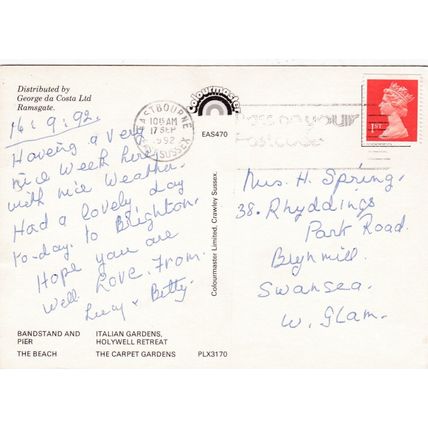 Distributed by
George da Costa Ltd
Ramsgate.
16: 9: 92.
Having a very
nice week here
with nice Weather.
Had a lovely day
to-day. to Brighton.
Hope you are
well. Love. from.
Lucy + Betty.
BANDSTAND AND PIER
THE BEACH
ITALIAN GARDENS, HOLYWELL RETREAT
THE CARPET GARDENS
PLX3170
Colourmaster
EAS470
Colourmaster Limited, Crawley Sussex.
EASTBOURNE
10 15AM
17 SEP
1992
E. SUSSEX
YOUR
POSTCODE
1ST
Mrs. H. Spring.
38. Rhyddings
Park Road.
Brynmill.
Swansea.
W. Glam.